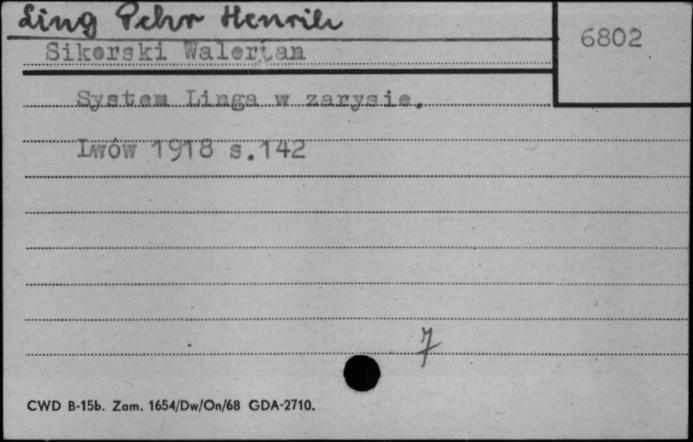 Ling Pehr Henrik
6802
Sikorski Walerian
System Linga w zarysie.
Lwów 1918 s.142
7
CWD B-15b. Zam. 1654/Dw/On/68 GDA-2710.